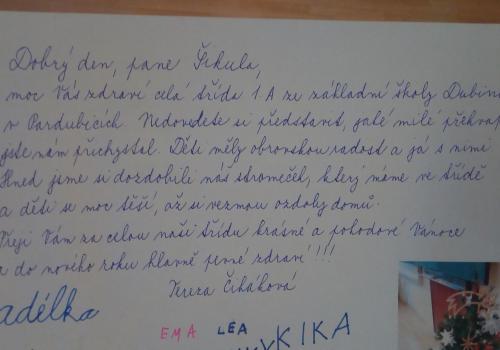 Dobrý den, pane Šikula,
moc Vás zdraví celá třída 1.A ze základní školy Dubina
v Pardubicích. Nedovedete si představit, jaké milé překvap
jste nám přichystal. Děti měly obrovskou radost a já s nimi
Hned jsme si dozdobili náš stromeček, který máme ve třídě
a děti se moc těší, až si vezmou ozdoby domů.
Přeji Vám za celou naši třídu krásné a pohodové Vánoce
a do nového roku hlavně pevné zdraví!!!
Tereza Čiháková
adélka
EMA LEA KIKA